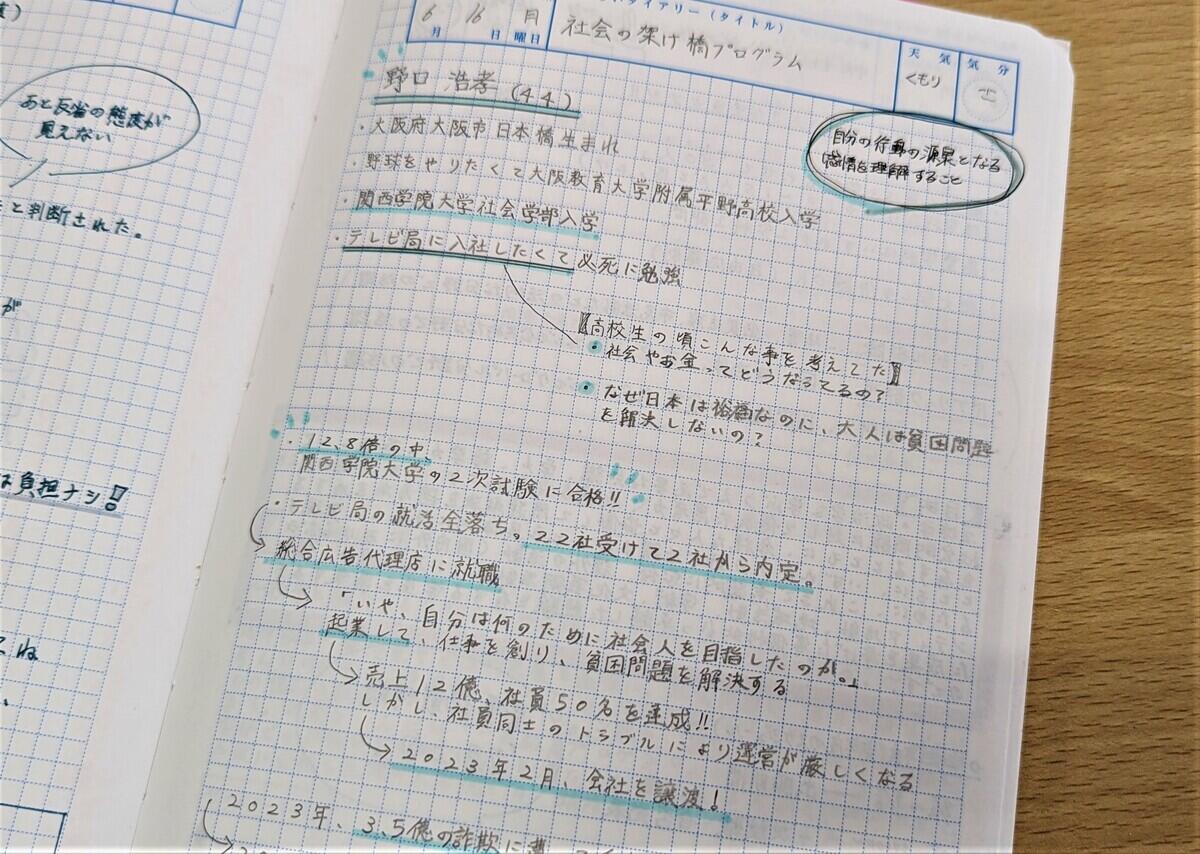 あと反省の態度が
見えない
と判断された。
が
は負担ナシ!
てね
ダイアリー(タイトル)
6月 16日 月曜日
社会の架け橋プログラム
天気
くもり
気分
野口 浩孝(44)
自分の行動の源泉となる
感情を理解すること
・大阪府大阪市日本橋生まれ
・野球をやりたくて大阪教育大学附属平野高校入学
・関西学院大学社会学部入学
・テレビ局に入社したくて必死に勉強
【高校生の頃こんな事を考えてた】
・社会やお金ってどうなってるの?
・なぜ日本は裕福なのに、大人は貧困問題
を解決しないの?
・12.8倍の中、
関西学院大学の2次試験に合格!!
・テレビ局の就活全落ち。22社受けて2社から内定。
総合広告代理店に就職
「いや、自分は何のために社会人を目指したのか。」
起業して、仕事を創り、貧困問題を解決する
売上12億、社員50名を達成!!
しかし、社員同士のトラブルにより運営が厳しくなる
2023年2月、会社を譲渡!
2023年、3.5億の詐欺に遭